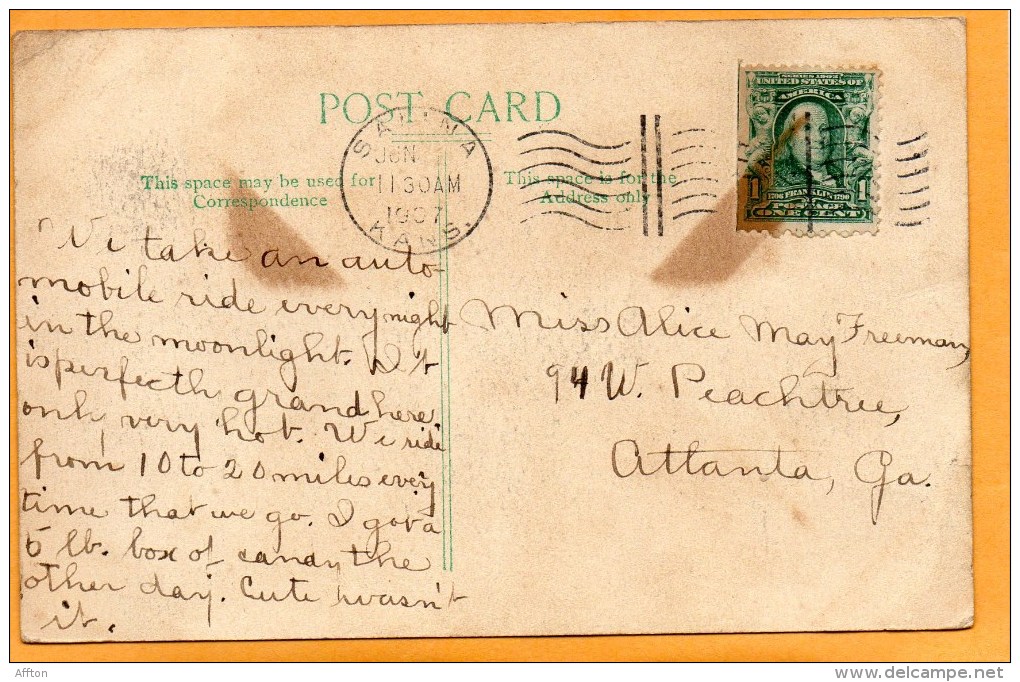 POST CARD
SALINA
JUN
1130AM
1907
KANS.
SERIES 1902
UNITED STATES OF
AMERICA
1706 FRANKLIN 1790
1 POSTAGE 1
ONE CENT
This space may be used for
Correspondence
This space is for the
Address only
We take an auto-
mobile ride every night
in the moonlight. It
is perfectly grand here
only very hot. We ride
from 10 to 20 miles every
time that we go. I got a
5 lb. box of candy the
other day. Cute wasn't
it.
Miss Alice May Freeman,
94 W. Peachtree,
Atlanta, Ga.
Affton
http://www.delcampe.net